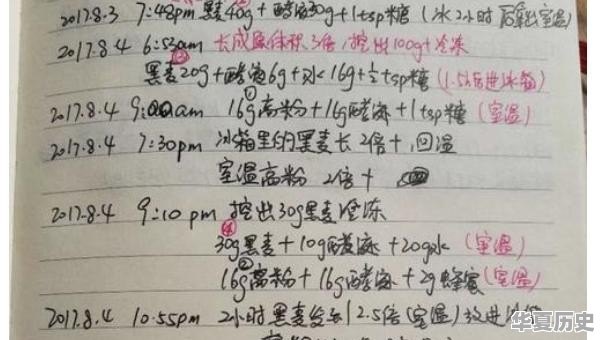 2017.8.3 7:48pm 黑麦40g+酵液30g+1tsp糖 (冰2小时 后室温)
2017.8.4 6:53am 长成原体积3倍, 挖出100g+冷冻
③
黑麦20g+酵液6g+水16g+½tsp糖 (1.5h后进冰箱)
①
2017.8.4 9:00am 16g高粉+16g酵液+1tsp糖 (室温)
2017.8.4 7:30pm 冰箱里的黑麦长2倍+, 回温
室温高粉 2倍+
2017.8.4 9:10pm 挖出30g黑麦冷冻
④
30g黑麦+10g酵液+20g水 (室温)
②
16g高粉+16g酵液+2g蜂蜜 (室温)
2017.8.4 10:55pm 2小时黑麦发至2.5倍(室温)放进冰箱
华夏历史